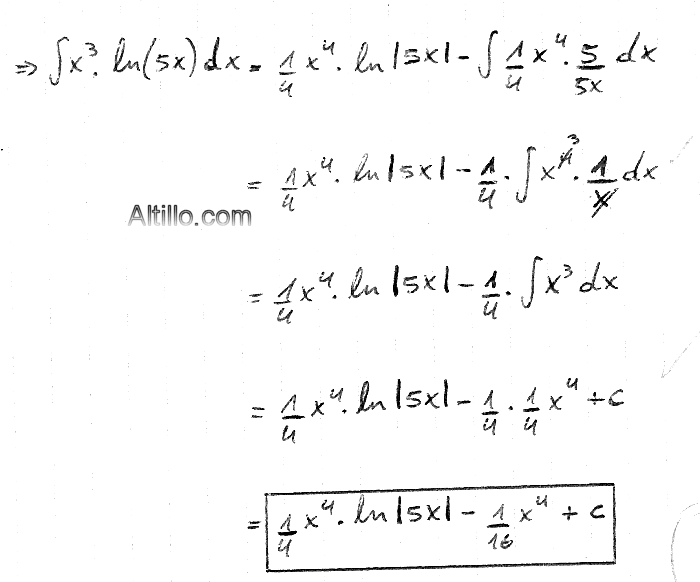 ⇒ ∫x³. ln(5x) dx = 1/4 x⁴. ln |5x| - ∫ 1/4 x⁴. 5/5x dx
= 1/4 x⁴. ln |5x| - 1/4 . ∫ x⁴ ³. 1/x dx
Altillo.com
= 1/4 x⁴. ln |5x| - 1/4 . ∫ x³ dx
= 1/4 x⁴. ln |5x| - 1/4 . 1/4 x⁴ + c
= 1/4 x⁴. ln |5x| - 1/16 x⁴ + c